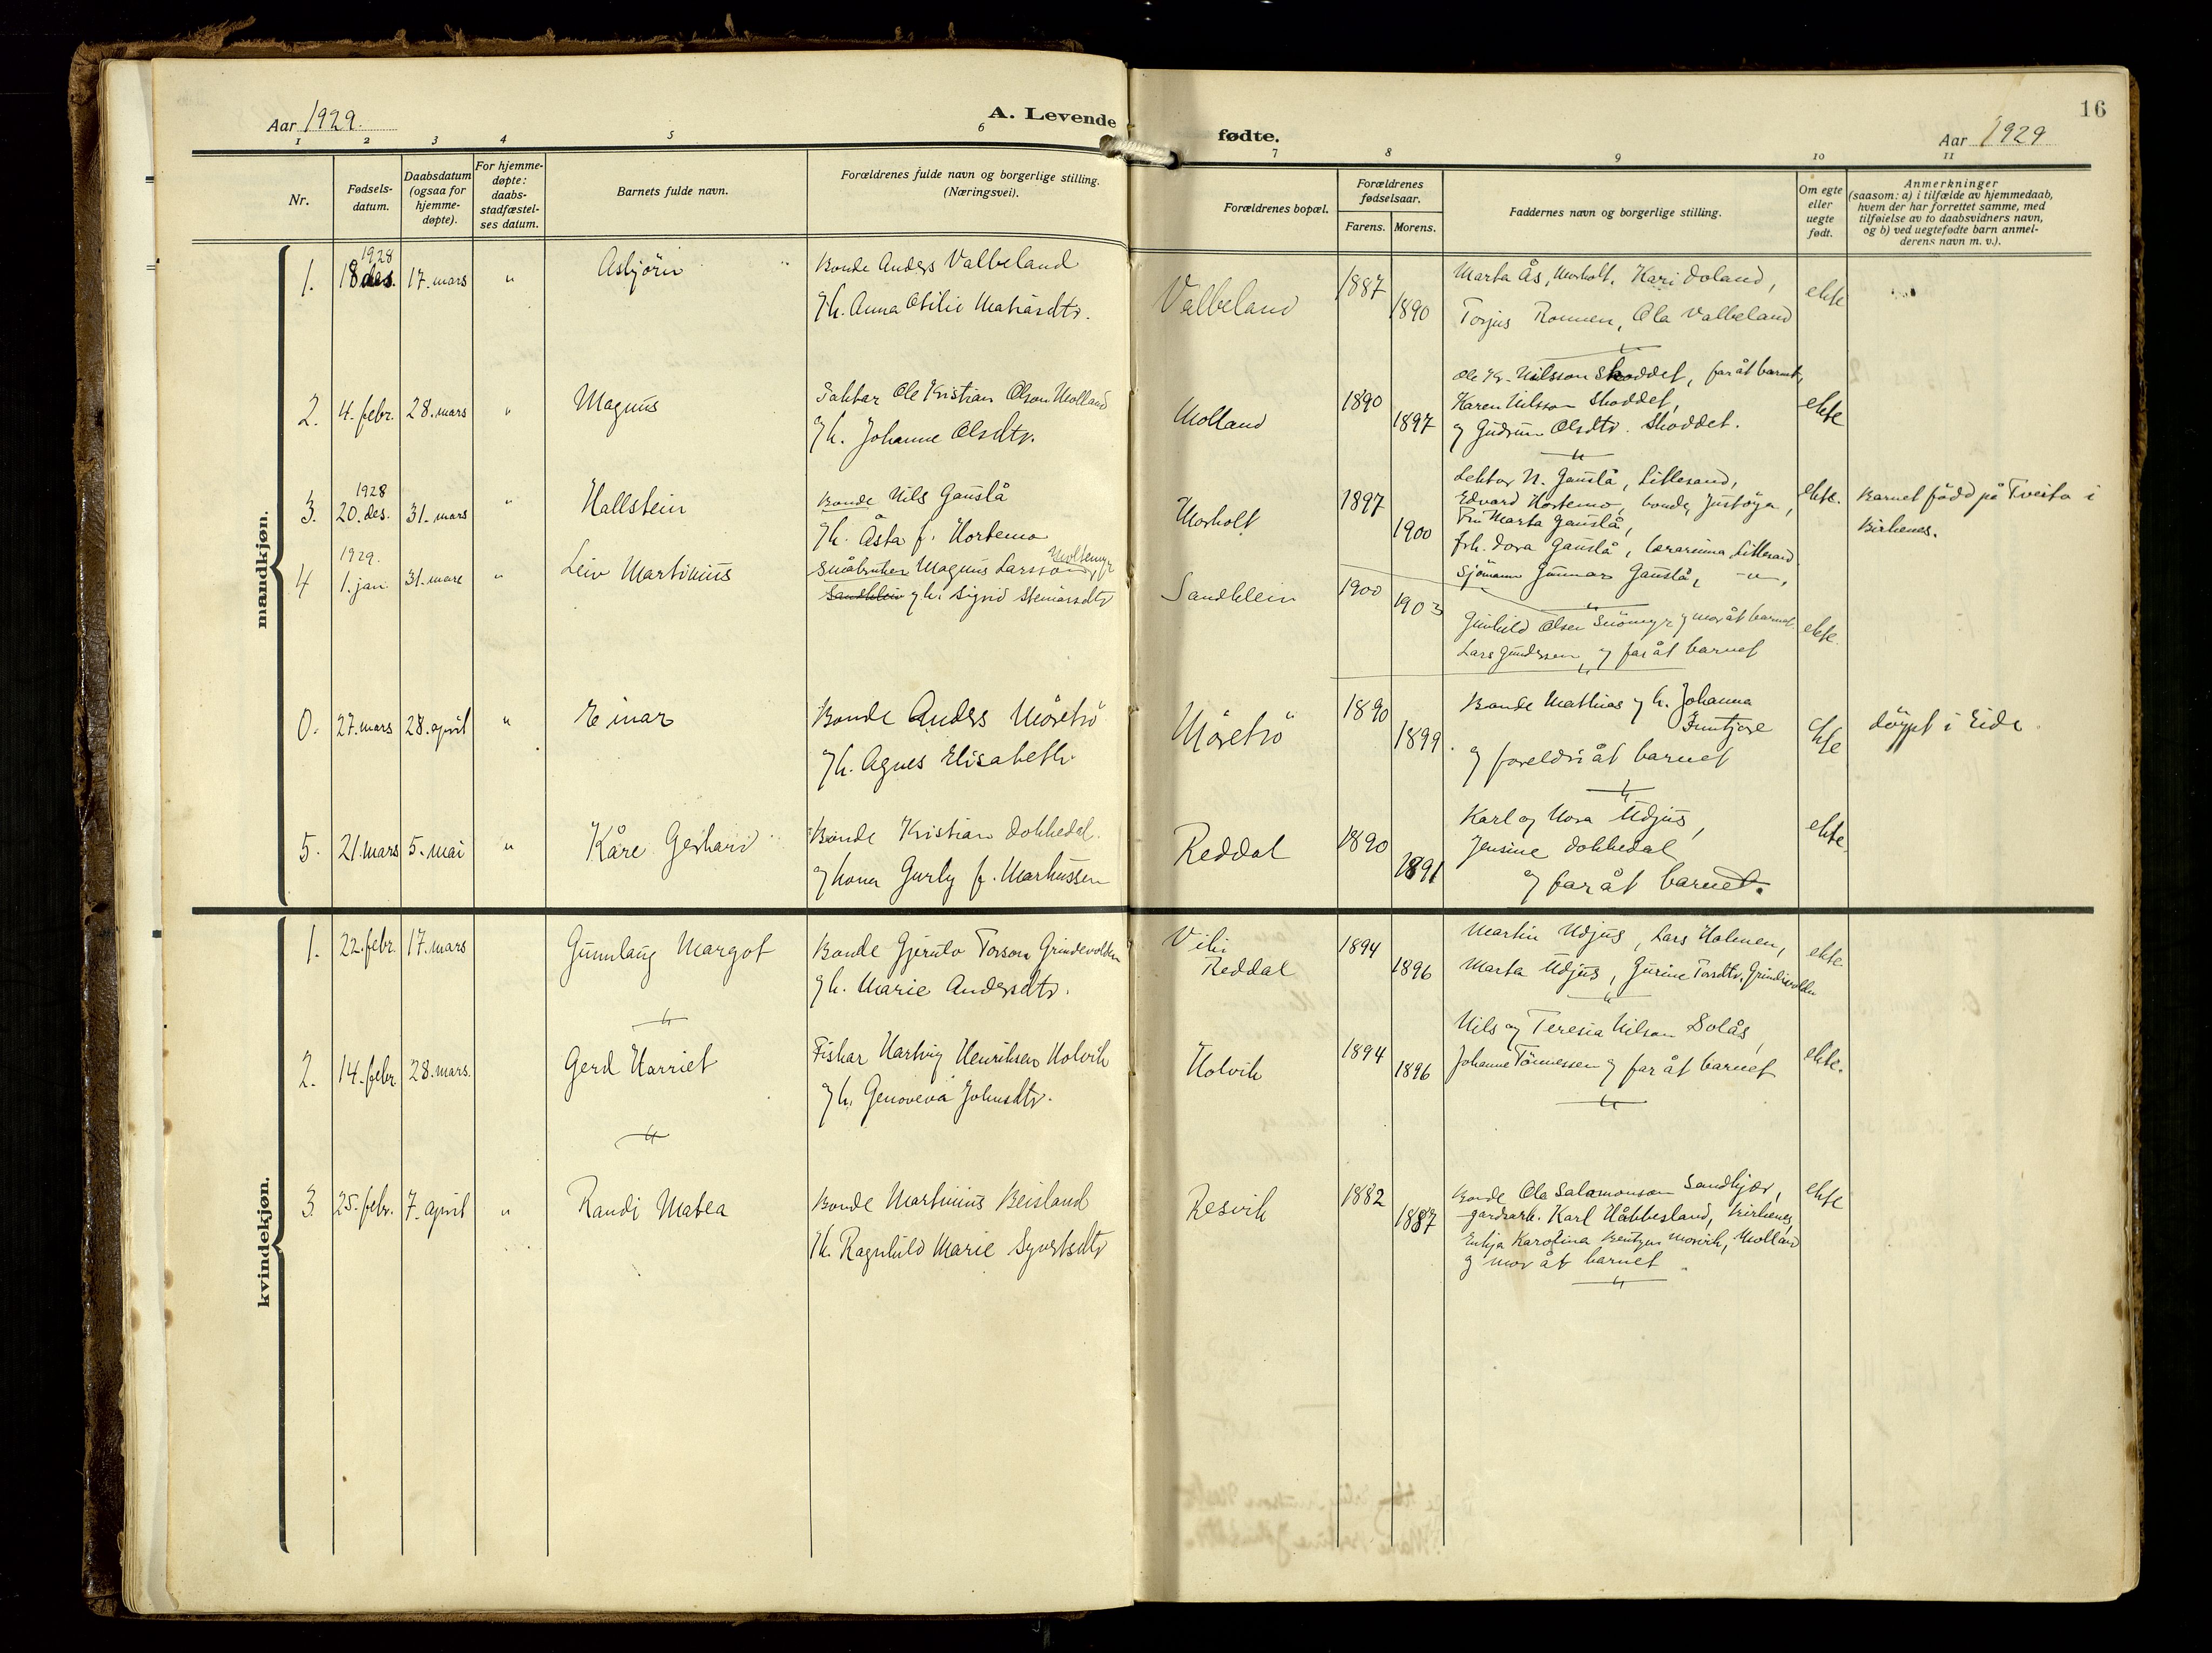 16
Aar 1929.
A. Levende
fødte.
Aar 1929
1 2 3 4 5 6 7 8 9 10 11
Nr.
Fødsels-
datum.
Daabsdatum
(ogsaa for
hjemme-
døpte).
For hjemme-
døpte:
daabs-
stadfæstel-
ses datum.
Barnets fulde navn.
Forældrenes fulde navn og borgerlige stilling.
(Næringsvei).
Forældrenes bopæl.
Forældrenes
fødselsaar.
Farens. Morens.
Faddernes navn og borgerlige stilling.
Om egte
eller
uegte
født.
Anmerkninger
(saasom: a) i tilfælde av hjemmedaab,
hvem der har forrettet samme, med
tilføielse av to daabsvidners navn,
og b) ved uegtefødte barn anmel-
derens navn m. v.).
mandkjøn.
1.
1928
18 des.
17. mars
"
Asbjörn
Bonde Anders Valbeland
og h. Anna Otilie Matiasdtr.
Valbeland
1887
1890
Marta Ås, Morholt, Kari Doland,
Torjus Rommen, Ola Valbeland
ekte
2.
4. febr.
28. mars
"
Magnus
Ole Kristian Olson Molland
og h. Johanne Olsdtr.
Molland
1890
1897
Ole Kr. Nilsson Skoddet, far åt barnet,
Karen Nilsson Skoddet,
og Gudrun Olsdtr. Skoddet.
ekte
3.
1928
20. des.
31. mars
"
Hallstein
Bonde Nils Gauslå
og h. Åsta f. Hortemo
Morholt
1897
1900
Lektor N. Gauslå, Lillesand,
Edvard Hortemo, bonde, Justöya,
Fru Marta Gauslå,
frk. Dora Gauslå, lærarinna Lillesand
Sjömann Gunnar Gauslå, -"-,
ekte.
Barnet född på Tveita i
Birkenes.
4
1929.
1. jan.
31. mars
"
Leiv Martinius
Småbruker Magnus Larsson Moltemyr
Sandkleiv og h. Sigrid Stemarsdtr
Sandkleiv
1900
1903
Gunhild Olsen Snömyr og mor åt barnet.
Lars Gundersen, og far åt barnet
ekte.
0.
27. mars
28. april
"
Einar
Bonde Anders Möretrö
og h. Agnes Elisabeth.
Möretrö
1890
1899.
Bonde Mathias og h. Johanna
og foreldri åt barnet
ekte
döypt i Eide.
5.
21. mars
5. mai
"
Kåre Gerhard
Bonde Kristian Dokkedal.
og kona Gurly f. Markussen
Reddal
1890
1891
Karl og Nora Udjus,
Jensine Dokkedal
og far åt barnet.
ekte.
kvindekjøn.
1.
22. febr.
17. mars
Gunnlaug Margot
Bonde Gjerulv Torson Grindevolden
og h. Marie Andersdtr.
Vihi
Reddal
1894
1896
Martin Udjus, Lars Holmen,
Marta Udjus, Gurine Torsdtr. Grindevolden
ekte.
2.
14. febr.
28. mars.
Gerd Harriet
Fiskar Hartvig Henriksen Holvik
og h. Genoveva Johnsdtr.
Holvik
1894
1896
Nils og Teresia Nilson Solås,
Johanne Tönnessen og far åt barnet
ekte.
3.
25. febr.
7. april
"
Randi Matea
Bonde Martinius Beisland
og h. Ragnhild Marie Syvertsdtr
Resvik
1882
1887
Bonde Ola Salamonson Sandkjær,
gardsarb. Karl Håbbesland, Birkenes,
Enkja Karolina Bentzen Morvik, Molland
og mor åt barnet
ekte